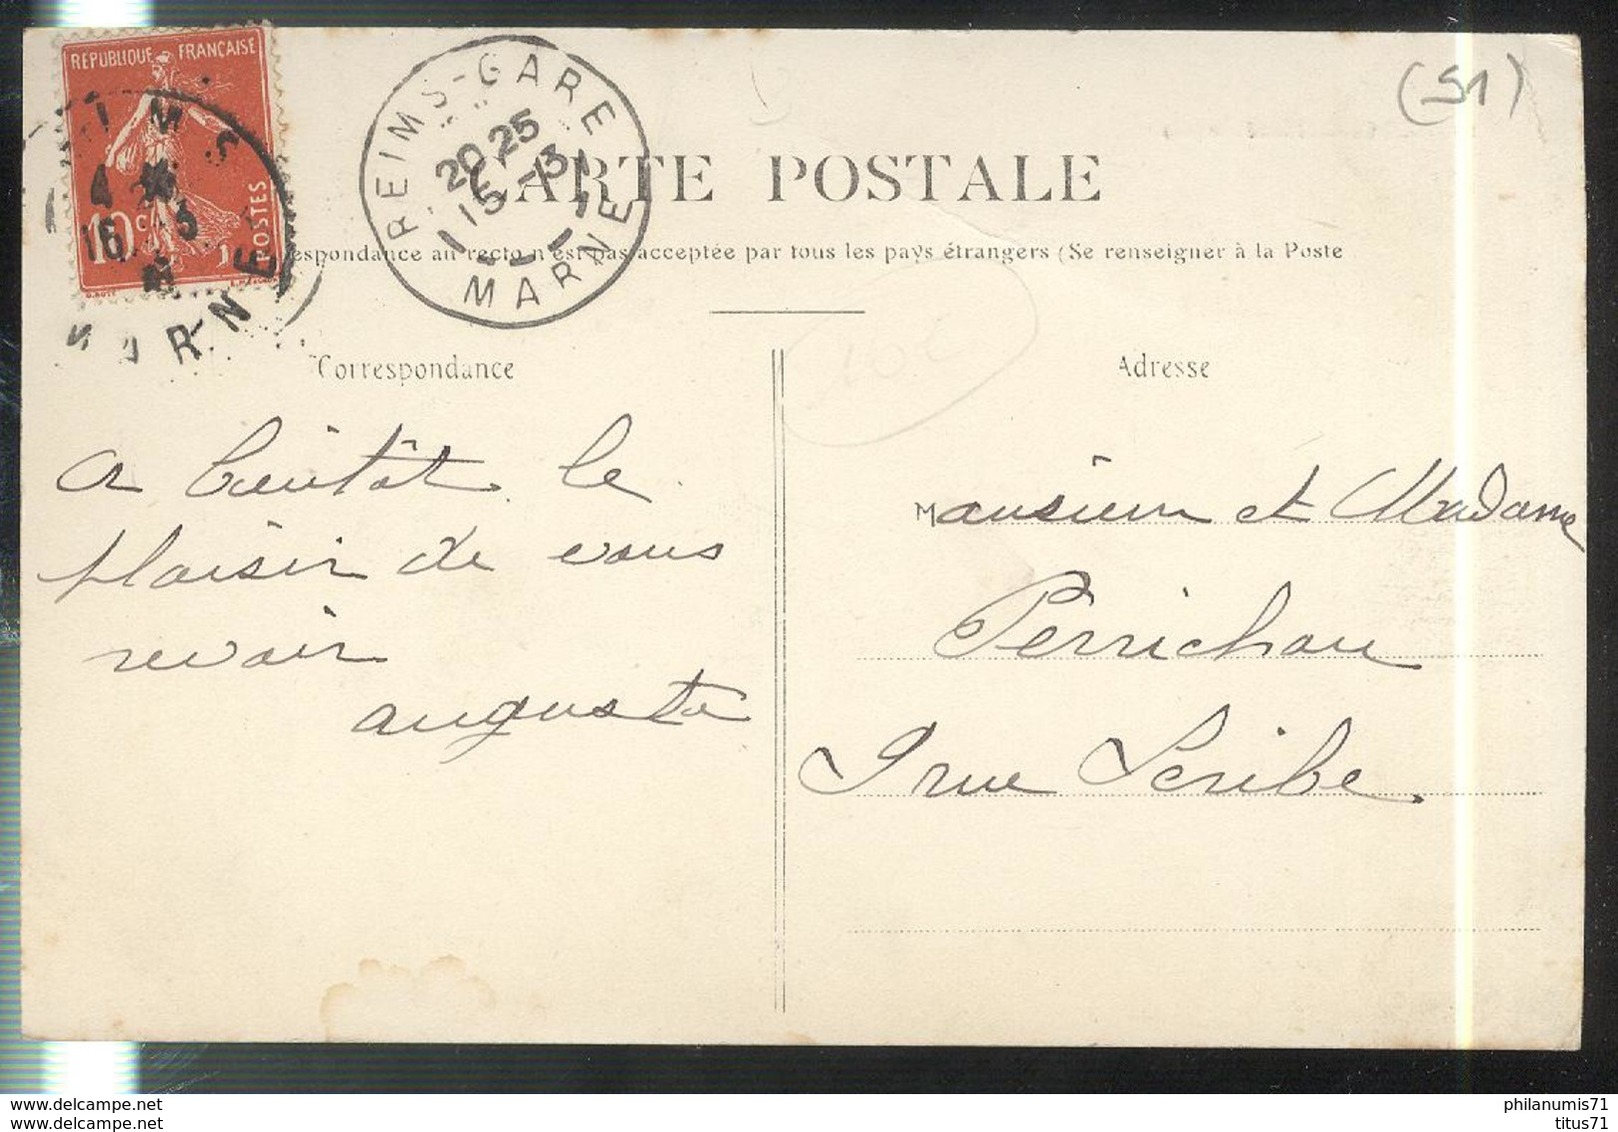 RÉPUBLIQUE FRANÇAISE
10c
POSTES
4
16 3
MARNE
REIMS-GARE
20 25
15-3
MARNE
(51)
CARTE POSTALE
espondance au recto n'est pas acceptée par tous les pays étrangers (Se renseigner à la Poste
Correspondance
a bientôt le
plaisir de vous
revoir
auguste
Adresse
Monsieur et Madame
Perrichon
9 rue Scribe
www.delcampe.net
www.delcampe.net
philanumis71
titus71